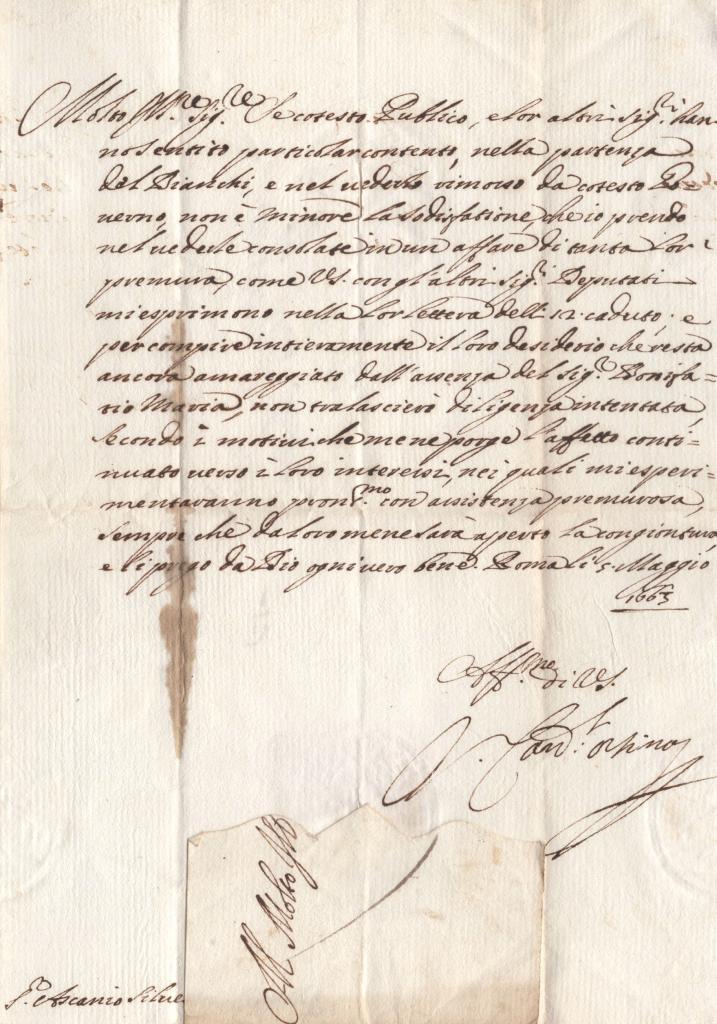 Molto Ill.re Sig.re Se cotesto Publico, e lor altri Sig.ri han
no sentito particolar contento, nella partenza
del Bianchi, e nel vederlo rimosso da cotesto Go
verno, non è minore la sodisfatione, che io prendo
nel vederle consolate in un affare di tanta lor
premura, come VS. con gl'altri Sig.ri Deputati
mi esprimono nella lor lettera delli 12. caduto; e
per compire intieramente il loro desiderio che resta
ancora amareggiato dall'assenza del Sig.r Bonifa=
tio Maria, non tralascierò diligenza intentata,
secondo i motivi che me ne porge l'affetto conti=
nuato verso i loro interessi, nei quali mi esperi=
mentaranno pront.mo con assistenza premurosa,
sempre che da loro me ne sarà aperto la congiontura,
e li prego da Dio ogni vero bene. Roma li 5. Maggio
1663
Aff.mo di VS.
Card.l Orsino
All Molto Ill
S.r Ascanio Silve